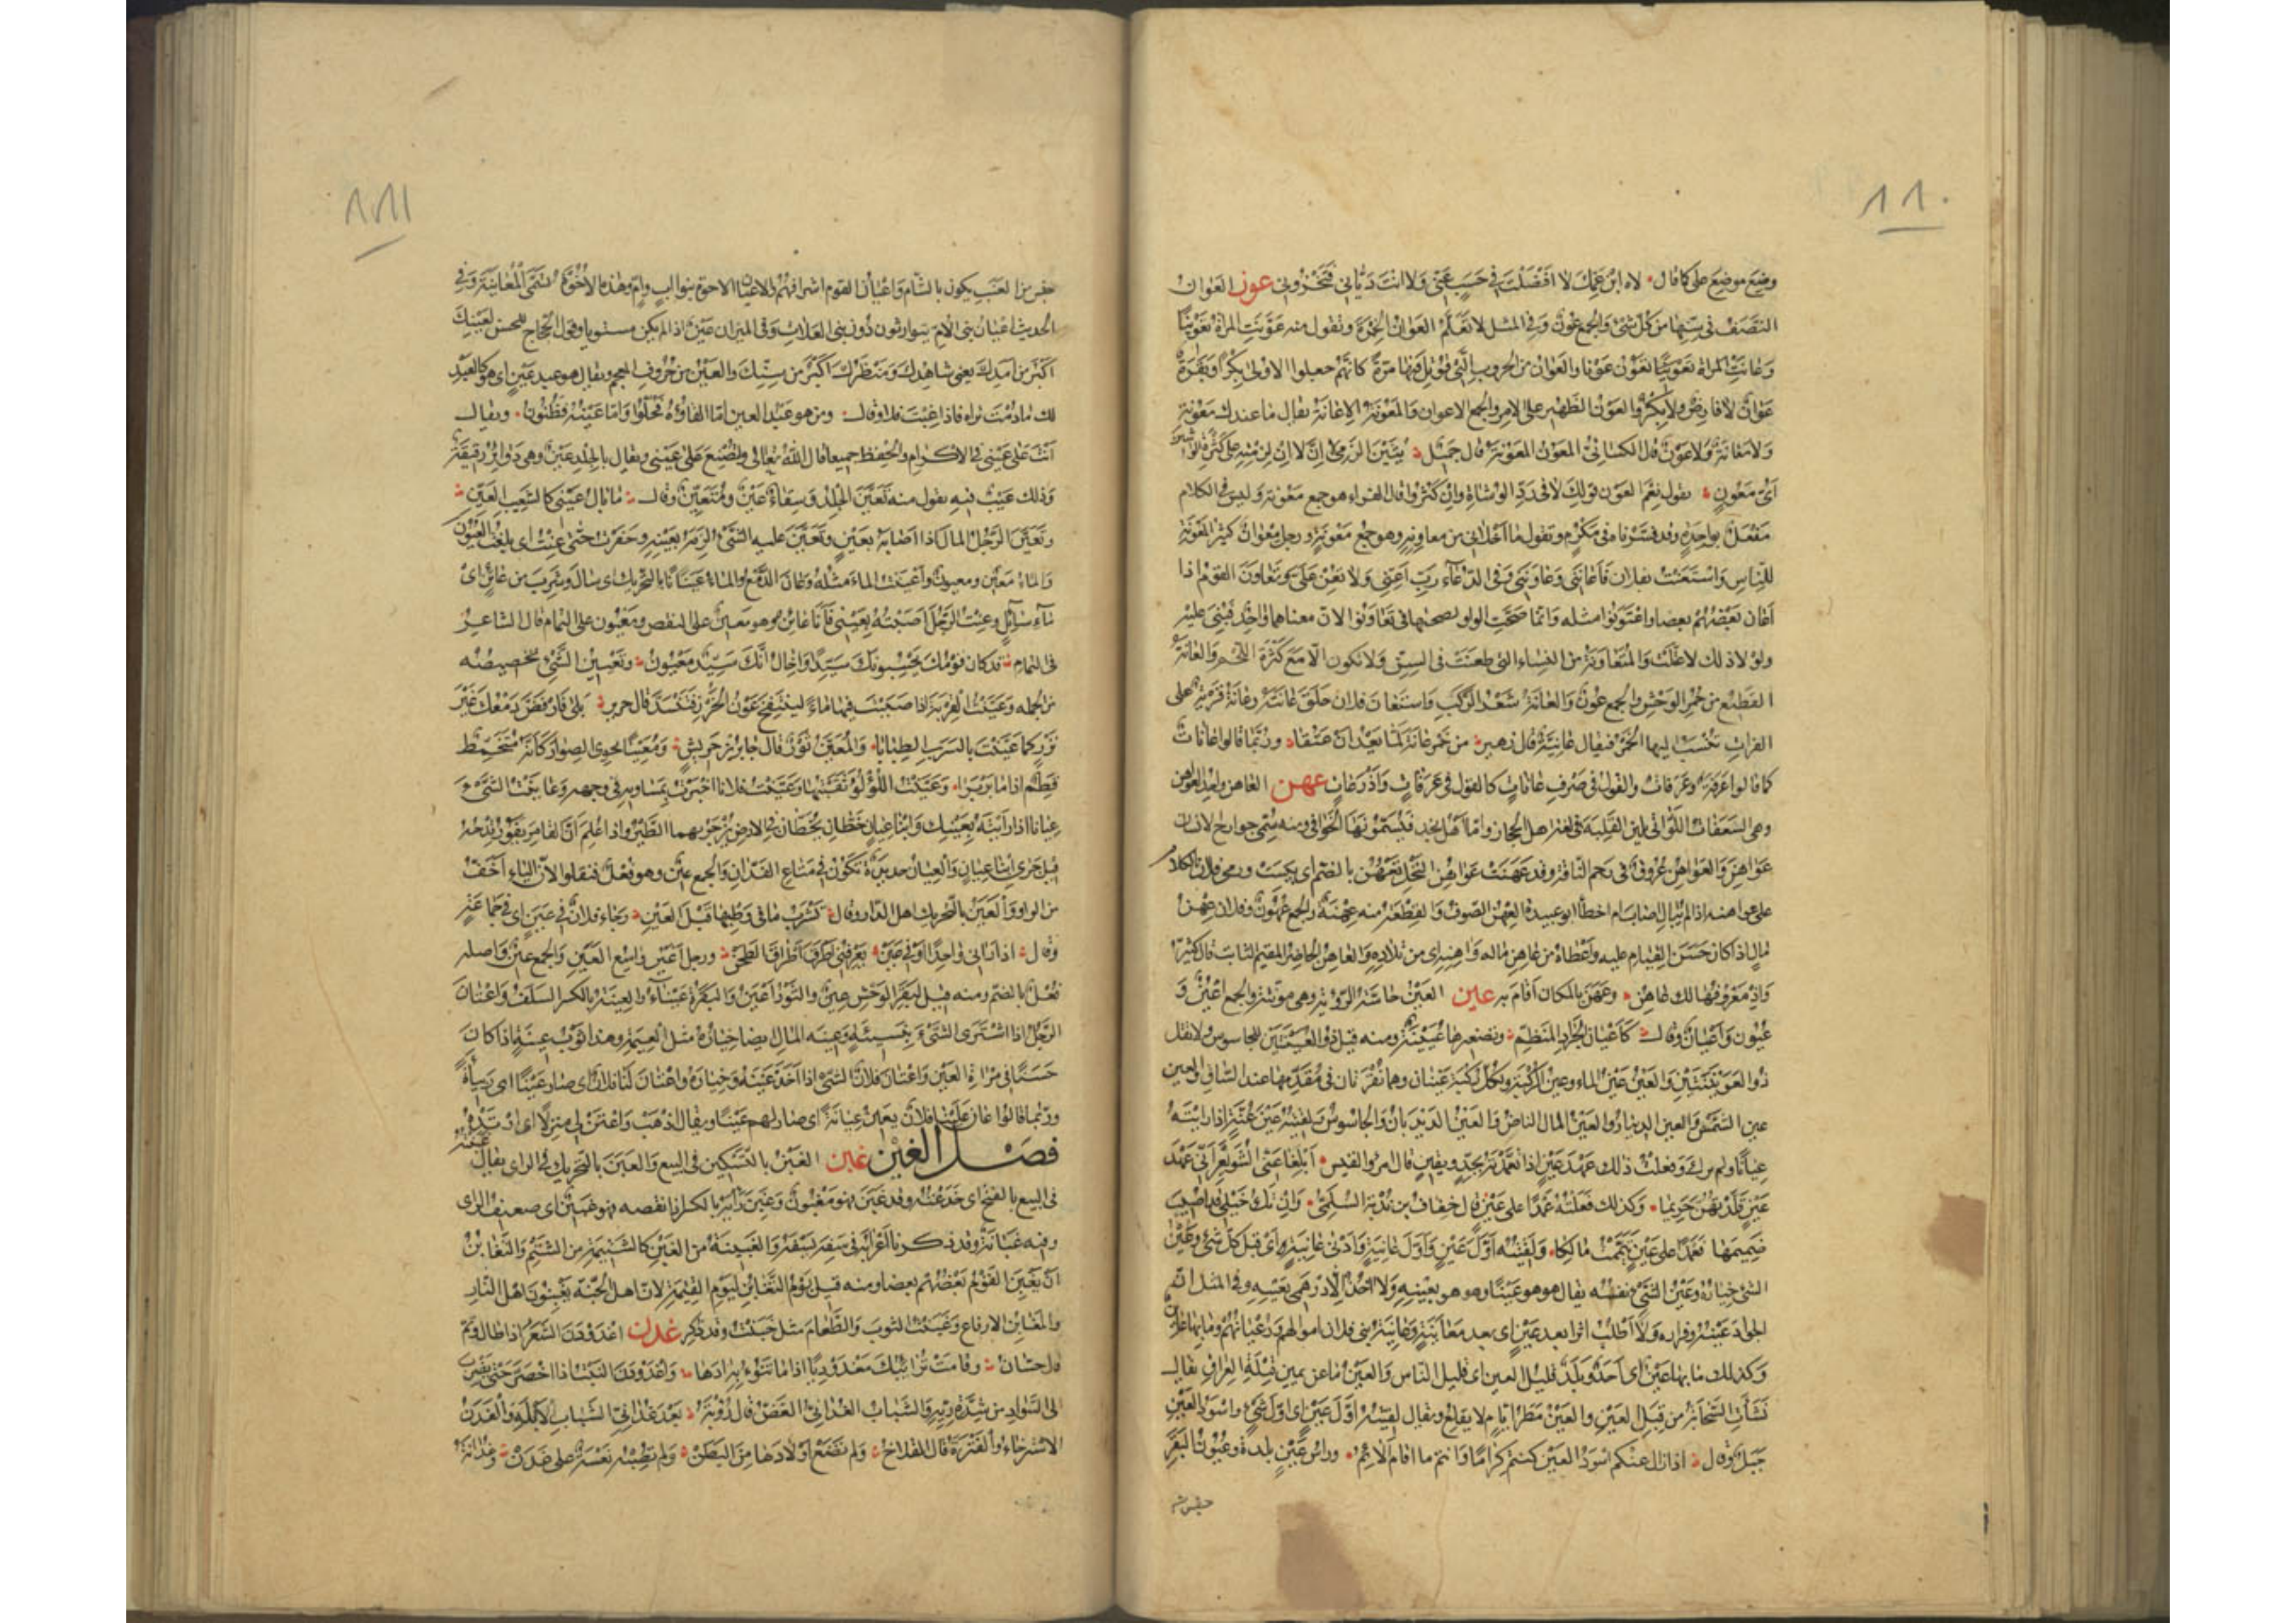 ٨٨٠
وضع موضع على كما قال لاه ابن عمك لا افضلت في حسب عنى ولا انت ديانى فتخزونى عون العوان
النصف فى سنها من كل شئ والجمع عون وفى المثل لا تعلم العوان الخمرة وتقول منه عونت المراة تعوينا
وعانت المراة تعون عونا والعوان من الحروب التى قوتل فيها مرة كانهم جعلوا الاولى بكرا وبقرة
عوان لا فارض ولا بكر والعون الظهير على الامر والجمع الاعوان والمعونة الاعانة يقال ما عندك معونة
ولا معانة ولا عون قال الكسائى المعون المعونة قال جميل بثين الزمى لا ان لا ان لزمته على كثرة الواشين
اى معون يقول نعم العون قولك لا فى رد الوشاة وان كثروا قال الفراء هو جمع معونة وليس فى الكلام
مفعل بواحدة وقد فسرناه فى مكرم وتقول ما اخلانى من معاونه وهو جمع معونة ورجل معوان كثير المعونة
للناس واستعنت بفلان فاعاننى وعاوننى وفى الدعاء رب اعنى ولا تعن على وتعاون القوم اذا
اعان بعضهم بعضا واعتونوا مثله وانما صحت الواو لصحتها فى تعاونوا لان معناهما واحد فبنى عليه
ولولا ذلك لاعتلت والمتعاونة من النساء التى طعنت فى السن ولا تكون الا مع كثرة اللحم والعانة
القطيع من حمر الوحش والجمع عون والعانة شعر الركب واستعان فلان حلق عانته وعانة قرية على
الفرات تنسب اليها الخمر فيقال عانية قال زهير من خمر عانة لما يعد ان عتقا وربما قالوا عانات
كما قالوا عرفة وعرفات والقول فى صرف عانات كالقول فى عرفات واذرعات عهن العاهن واحد العواهن
وهى السعفات اللواتى يلين القلبة فى لغة اهل الحجاز واما اهل نجد فيسمونها الخوافى ومنه سمى جوارح الانسان
عواهن والعواهن عروق فى رحم الناقة وقد عهنت عواهن النخل تعهن بالضم اى يبست ورمى فلان بالكلام
على عواهنه اذا لم يبال اصاب ام اخطأ ابو عبيدة العهن الصوف والقطعة منه عهنة والجمع عهون وفلان عهن
مال اذا كان حسن القيام عليه واعطاه من عاهن ماله واهنه اى من تلاده والعاهن الحاضر المقيم الثابت قال كثير
واذ معروفها لك عاهن وعهن بالمكان اقام به عين العين حاسة الرؤية وهى مؤنثة والجمع اعين و
عيون واعيان وقال كاعيان الجراد المنظم وتصغيرها عيينة ومنه قيل ذو العيينتين للجاسوس ولا تقل
ذو العوينتين والعين عين الماء وعين الركبة ولكل ركبة عينان وهما نقرتان فى مقدمها عند الساق والعين
عين الشمس والعين الدينار والعين المال الناض والعين الديدبان والجاسوس ولقيته عين عنة اذا رايته
عيانا ولم يرك وفعلت ذلك عمد عين اذا تعمدته بجد ويقين قال امرؤ القيس ابلغا عنى الشويعر انى عمد
عين قلدتهن حريما وكذلك فعلته عمدا على عين قال خفاف بن ندبة السلمى وان تك خيلى قد اصيب
صميمها فعمدا على عين تيممت مالكا ولقيته اول عين واول عانية وادنى عانية اى قبل كل شئ وعين
الشئ خياره وعين الشئ نفسه يقال هو هو عينا وهو هو بعينه ولا اخذ الا درهمى بعينه وفى المثل ان
الجواد عينه فراره ولا اطلب اثرا بعد عين اى بعد معاينة وعاينة بنى فلان اموالهم ورعيانهم وما بها عائن
وكذلك ما بها عين اى احد وبلد قليل العين اى قليل الناس والعين ما عن يمين قبلة العراق يقال
نشأت السحابة من قبل العين والعين مطر ايام لا يقلع ويقال لقيته اول عين اى اول شئ واسود العين
جبل وقال اذا زال عنكم اسود العين كنتم كراما وانتم ما اقام الائم وراس عين بلدة وعيون البقر
جنس من
٨٨١
جنس من العنب يكون بالشام واعيان القوم اشرافهم والاعيان الاخوة بنو اب وام وهذه الاخوة تسمى المعاينة وفى
الحديث اعيان بنى الام يتوارثون دون بنى العلات وفى الميزان عين اذا لم يكن مستويا وقول الحجاج للحسن لعينك
اكبر من امدك يعنى شاهدك ومنظرك اكبر من سنك والعين من حروف المعجم ويقال هو عبد عين اى هو كالعبد
لك ما دمت تراه فاذا غبت فلا وقال ومن هو عبد العين اما لقاؤه فحلو واما غيبه فظنون ويقال
انت على عينى فى الاكرام والحفظ جميعا قال الله تعالى ولتصنع على عينى ويقال بالجلد عين وهى دوائر رقيقة
وذلك عيب فيه يقول منه تعين الجلد وسقاء عين ومتعين وقال ما بال عينى كالشعيب العين
وتعين الرجل المال اذا اصابه بعين وتعين عليه الشئ لزمه بعينه وحفرت حتى عنت اى بلغت العيون
والماء معين ومعيون واعينت الماء مثله وعان الدمع والماء عينانا بالتحريك اى سال وشرب من عائن اى
ماء سائل وعنت الرجل اصبته بعينى فانا عائن وهو معين على النقص ومعيون على التمام قال الشاعر
فى التمام قد كان قومك يحسبونك سيدا واخال انك سيد معيون وتعيين الشئ تخصيصه
من الجملة وعينت القربة اذا صببت فيها ماء لينتفخ عيون الخرز فتنسد قال جرير بلى فارفض دمعك غير
نزر كما عينت بالسرب الطبابا والمعين ثور قال جابر بن حريش ومعينا يحوى الصوار كانه متخمط
قطم اذا ما بربرا وعينت اللؤلؤة ثقبتها وعينت فلانا اخبرته بمساويه فى وجهه وعاينت الشئ
عيانا اذا رايته بعينك وابنا عيان خطان يخطان فى الارض يزجر بهما الطير واذا علم ان القامر يفوز قدحه
قيل جرى ابنا عيان والعيان حديدة تكون فى متاع الفدان والجمع عين وهو فعل فنقلوا لان الياء اخف
من الواو والعين بالتحريك اهل الدار وقال تشرب ما فى وطبها قبل العين وجاء فلان فى عين اى فى جماعة
وقال اذا رانى واحدا او فى عين يعرفنى اطرق اطراق الطحن ورجل اعين واسع العين والجمع عين واصله
فعل بالضم ومنه قيل لبقر الوحش عين والثور اعين والبقرة عيناء والعينة بالكسر السلف واعتان
الرجل اذا اشترى الشئ بنسيئة وعينة المال ايضا خياره مثل العيمة وهذا ثوب عينة اذا كان
حسنا فى مرآة العين واعتان فلان الشئ اذا اخذ عينه وخياره واعتان لنا فلان اى صار عينا اى ربيئة
وربما قالوا عان علينا فلان يعين عيانة اى صار لهم عينا ويقال اذهب واعتن لى منزلا اى ارتده
فصل الغين غبن الغبن بالتسكين فى البيع والغبن بالتحريك فى الراى يقال غبنته
فى البيع بالفتح اى خدعته وقد غبن فهو مغبون وغبن رايه بالكسر اذا نقصه فهو غبين اى ضعيف الراى
وفيه غبانة وقد ذكرنا اعرابه فى سفه نفسه والغبينة من الغبن كالشتيمة من الشتم والتغابن
ان يغبن القوم بعضهم بعضا ومنه قيل يوم التغابن ليوم القيمة لان اهل الجنة يغبنون اهل النار
والمغابن الارفاغ وغبنت الثوب والطعام مثل خبنت وقد ذكر غدن اغدودن الشعر اذا طال وتم
قال حسان وقامت ترائيك مغدودنا اذا ما تنوء به ادها واغدودن النبت اذا اخضر حتى يضرب
الى السواد من شدة ريه والشباب الغدانى الغض قال رؤبة بعد غدانى الشباب الابله والغدن
الاسترخاء والفترة قال القلاخ ولم تضع اولادها من البطن ولم تصبه نعسة على غدن وغدانة